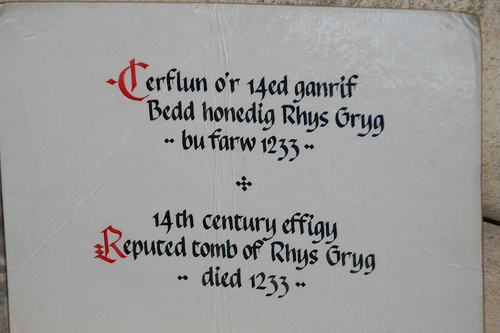 Cerflun o'r 14ed ganrif
Bedd honedig Rhys Gryg
·· bu farw 1233 ··
14th century effigy
Reputed tomb of Rhys Gryg
·· died 1233 ··